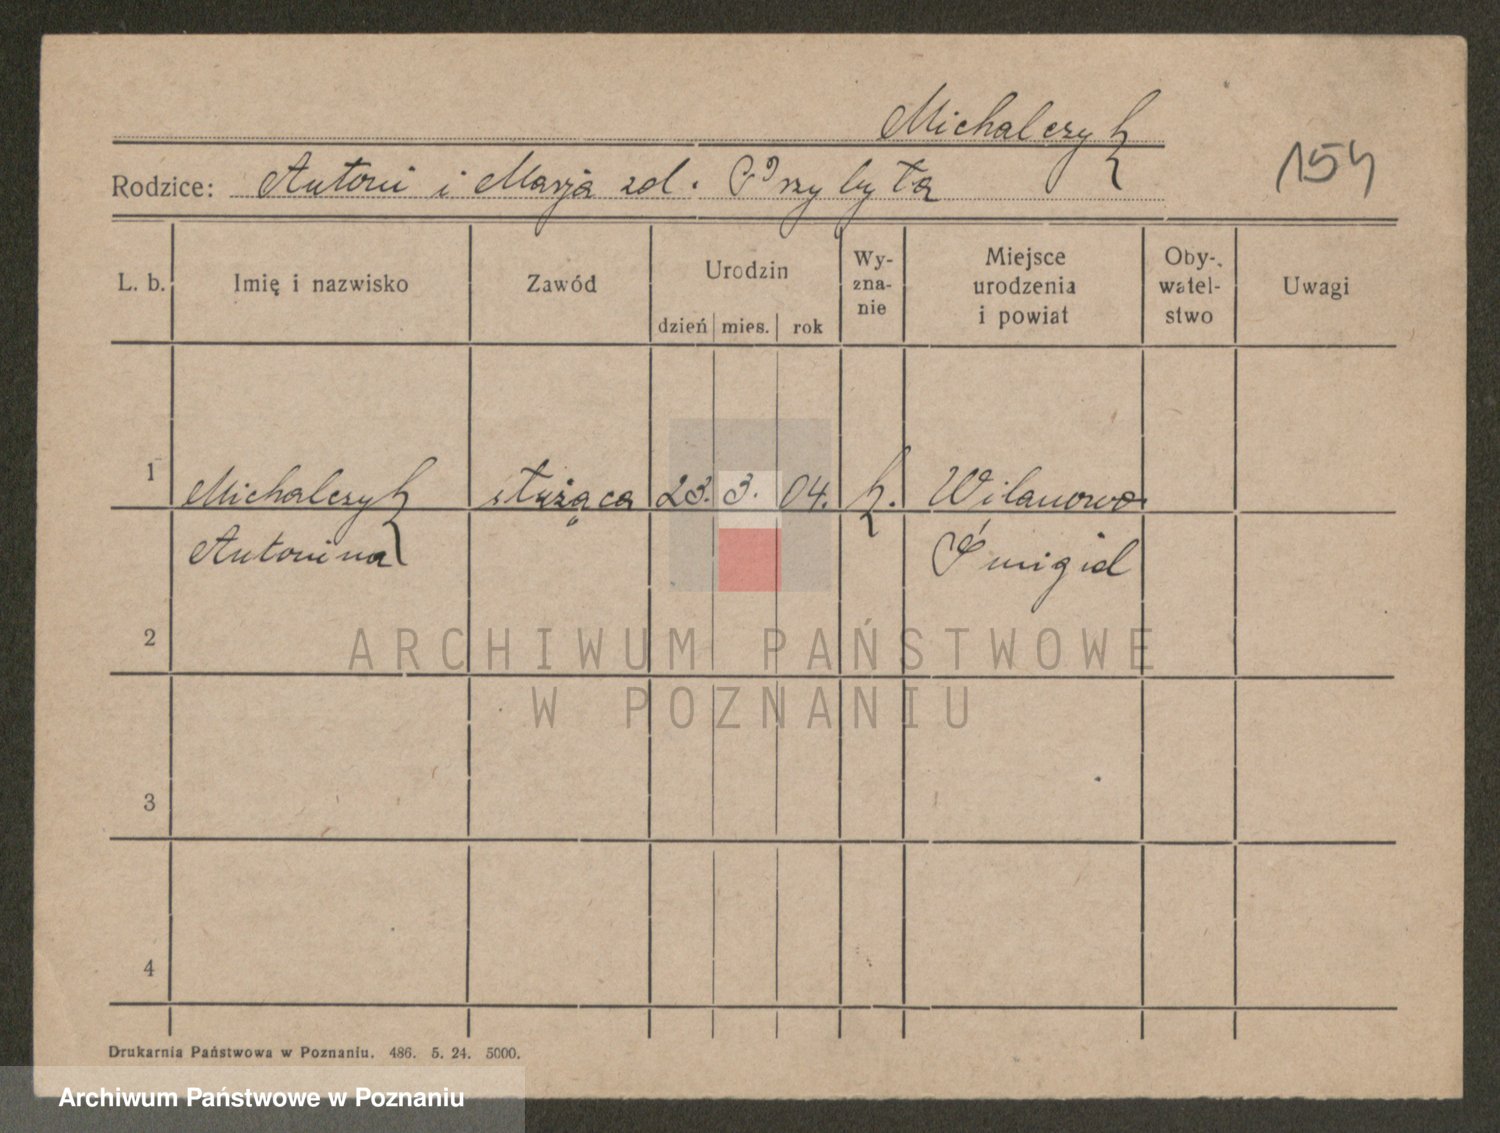 Michalczyk
Rodzice: Antoni i Marja zd. Przybyła
154
L. b.
Imię i nazwisko
Zawód
Urodzin
dzień mies. rok
Wy-
zna-
nie
Miejsce
urodzenia
i powiat
Oby-
watel-
stwo
Uwagi
1 Michalczyk służąca 23. 3. 04. k. Wilanowo
Antonina Śmigiel
2
3
4
ARCHIWUM PAŃSTWOWE
W POZNANIU
Drukarnia Państwowa w Poznaniu. 486. 5. 24. 5000.
Archiwum Państwowe w Poznaniu